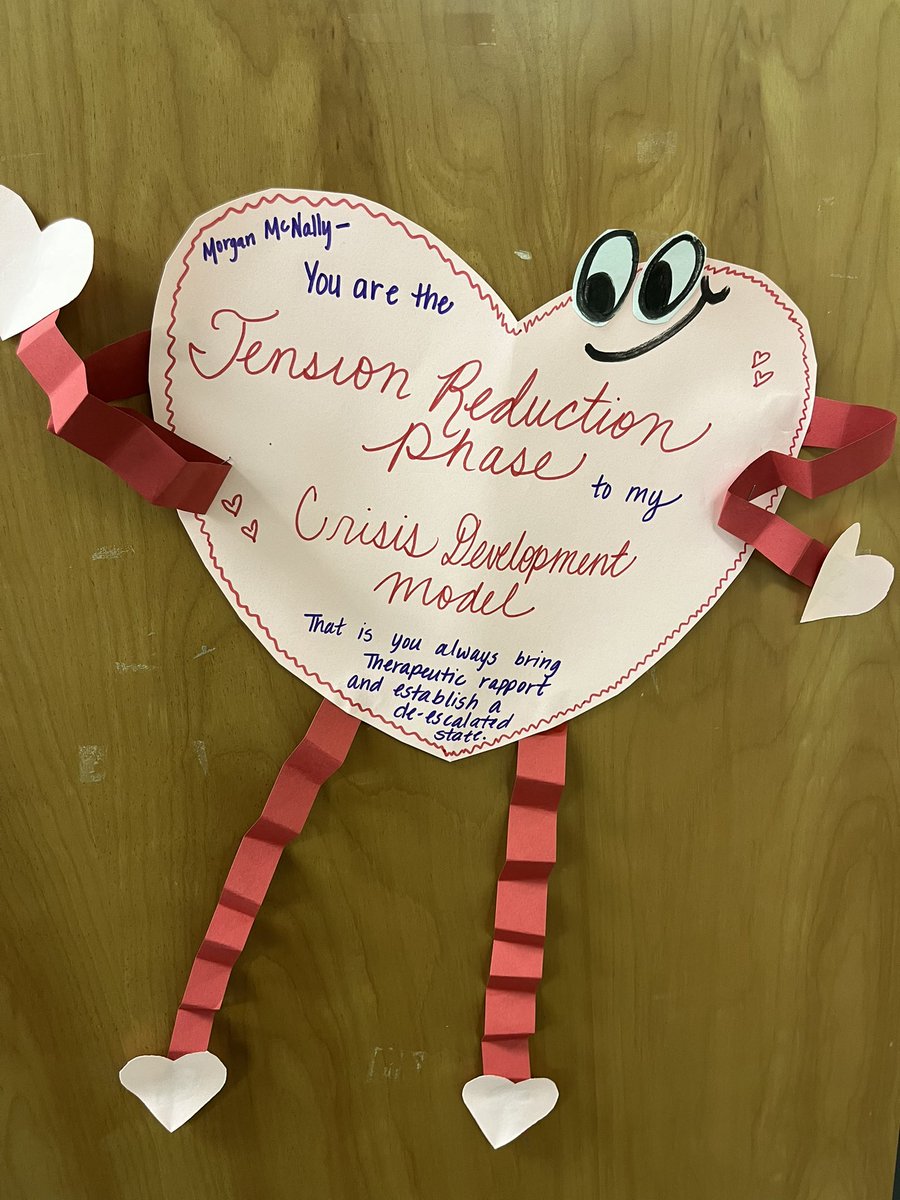 Morgan McNally-
You are the
Tension Reduction
Phase
to my
Crisis Development
Model
That is you always bring
Therapeutic rapport
and establish a
de-escalated
state.